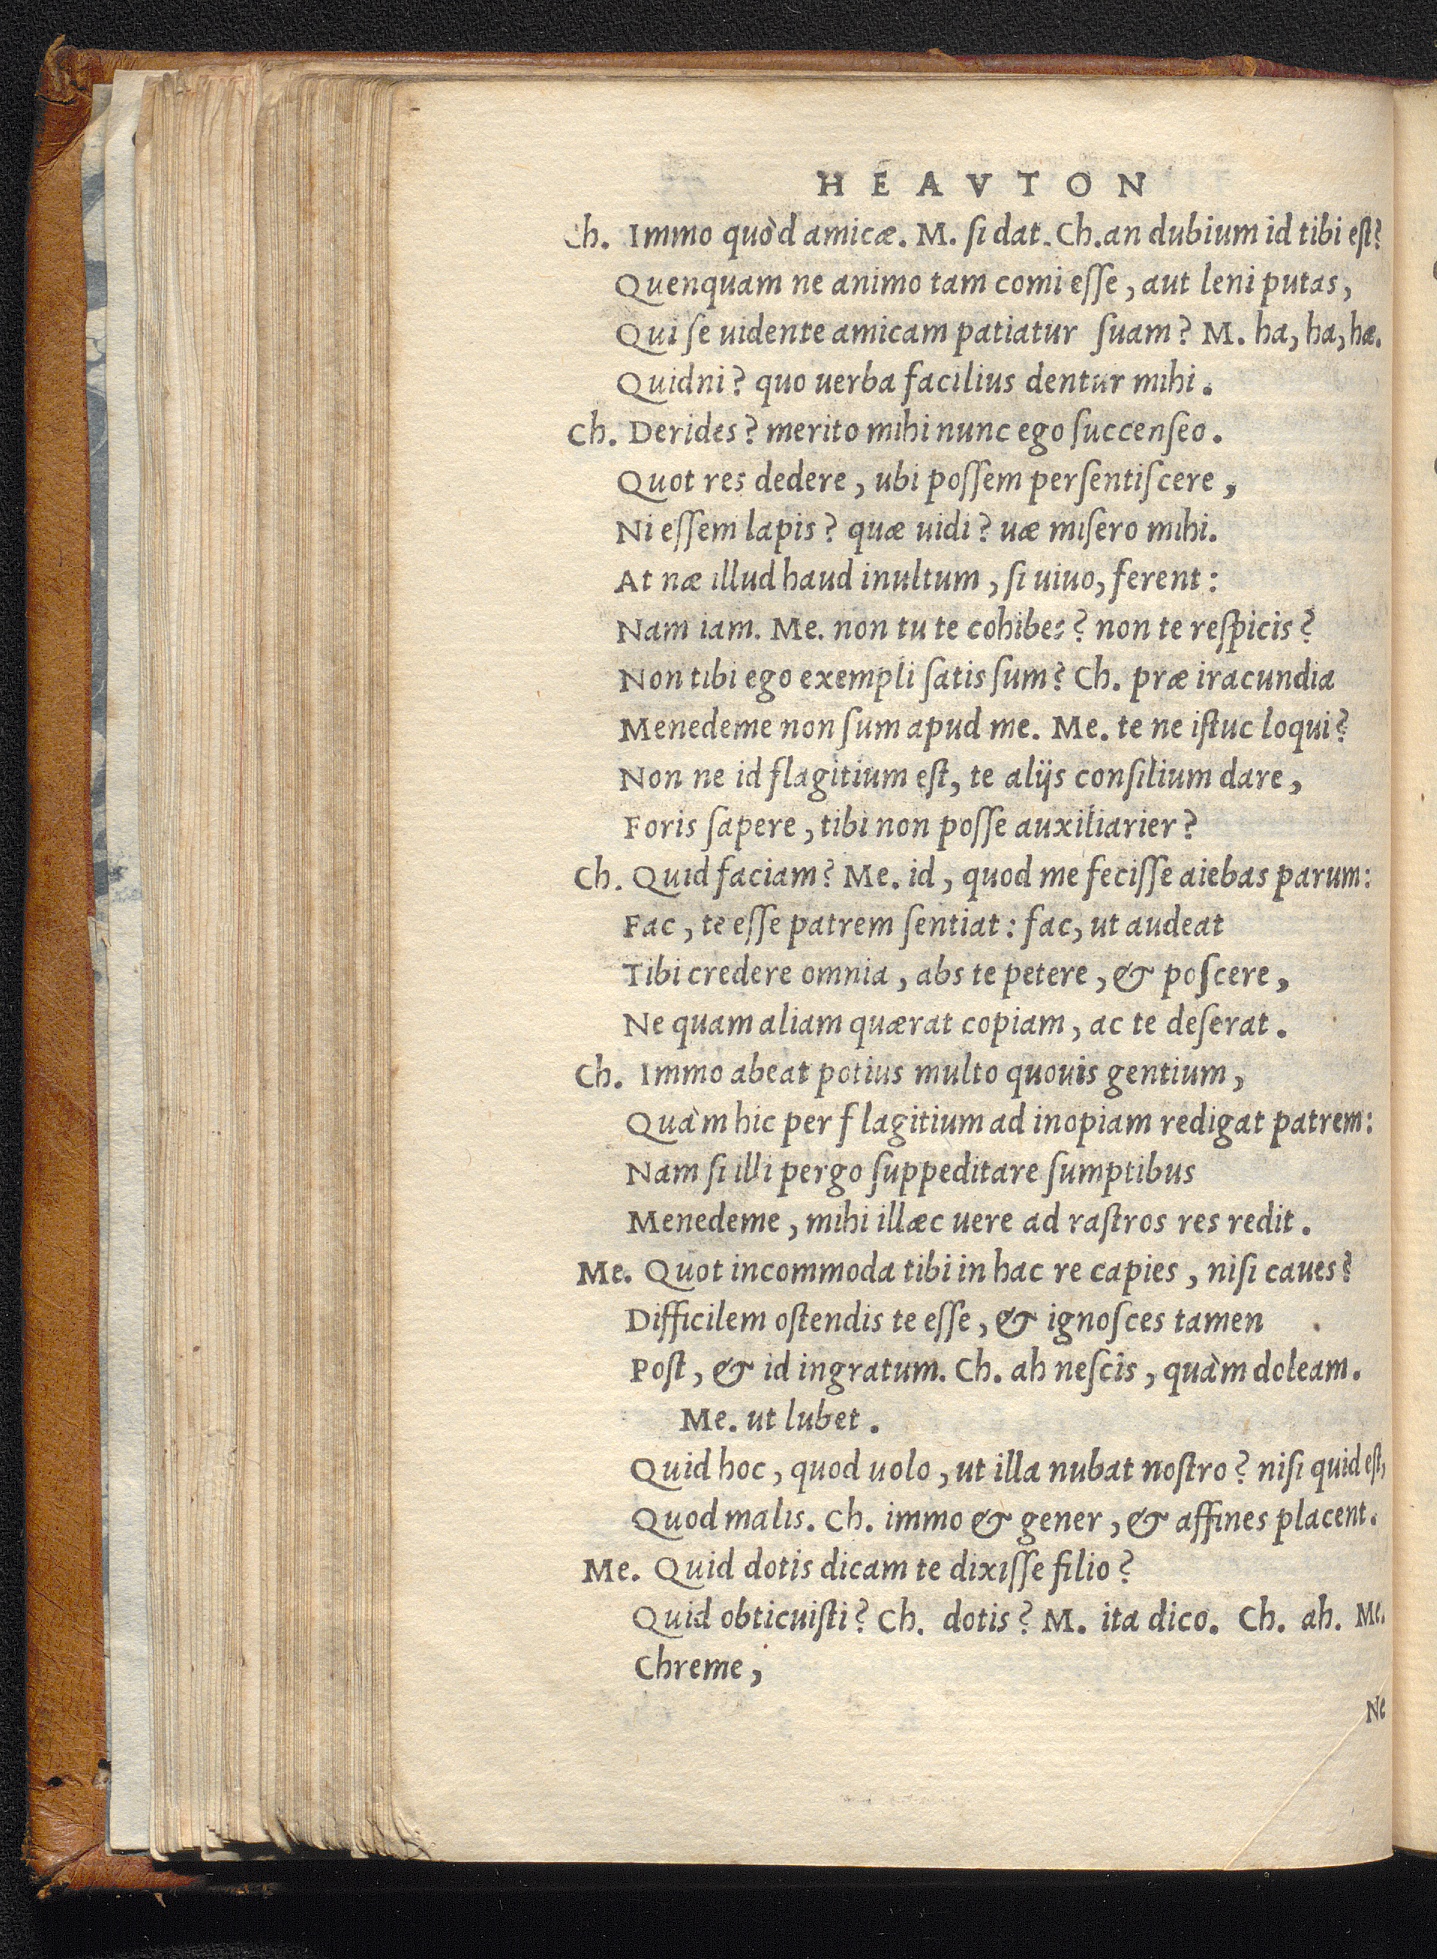 HEAVTON
Ch. Immo quòd amicæ. M. si dat. Ch. an dubium id tibi est?
Quenquam ne animo tam comi esse, aut leni putas,
Qui se uidente amicam patiatur suam? M. ha, ha, hæ.
Quidni? quo uerba facilius dentur mihi.
Ch. Derides? merito mihi nunc ego succenseo.
Quot res dedere, ubi possem persentiscere,
Ni essem lapis? quæ uidi? uæ misero mihi.
At næ illud haud inultum, si uiuo, ferent:
Nam iam. Me. non tu te cohibes? non te respicis?
Non tibi ego exempli satis sum? Ch. præ iracundia
Menedeme non sum apud me. Me. te ne istuc loqui?
Non ne id flagitium est, te alijs consilium dare,
Foris sapere, tibi non posse auxiliarier?
Ch. Quid faciam? Me. id, quod me fecisse aiebas parum:
Fac, te esse patrem sentiat: fac, ut audeat
Tibi credere omnia, abs te petere, & poscere,
Ne quam aliam quærat copiam, ac te deserat.
Ch. Immo abeat potius multo quouis gentium,
Quàm hic per flagitium ad inopiam redigat patrem:
Nam si illi pergo suppeditare sumptibus
Menedeme, mihi illæc uere ad rastros res redit.
Me. Quot incommoda tibi in hac re capies, nisi caues?
Difficilem ostendis te esse, & ignosces tamen
Post, & id ingratum. Ch. ah nescis, quàm doleam.
Me. ut lubet.
Quid hoc, quod uolo, ut illa nubat nostro? nisi quid est,
Quod malis. Ch. immo & gener, & affines placent.
Me. Quid dotis dicam te dixisse filio?
Quid obticuisti? Ch. dotis? M. ita dico. Ch. ah. Me.
Chreme,
Ne